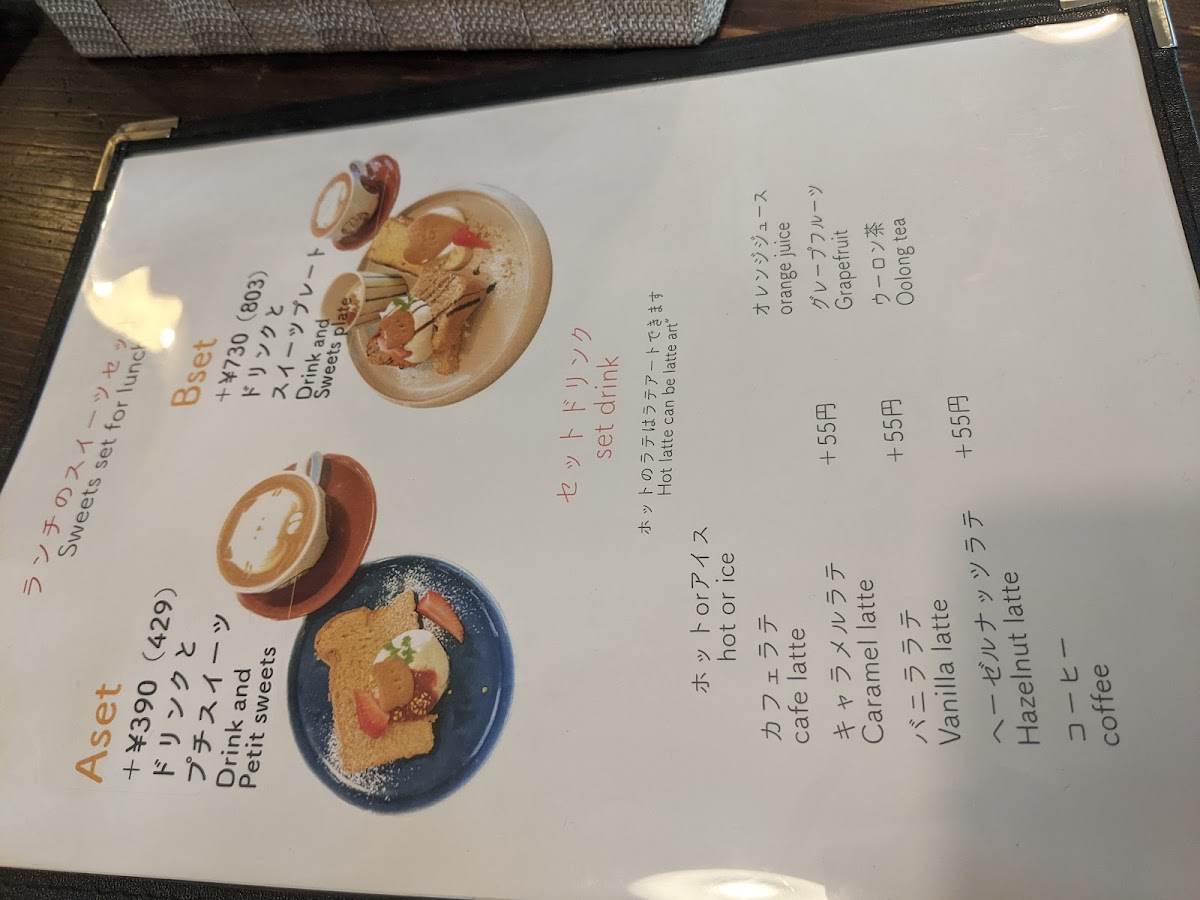 ランチのスイーツセッ
Sweets set for lunch
Aset
+¥390 (429)
ドリンクと
プチスイーツ
Drink and
Petit sweets
Bset
+¥730 (803)
ドリンクと
スイーツプレート
Drink and
Sweets plate
セットドリンク
set drink
ホットのラテはラテアートできます
Hot latte can be latte art”
ホットorアイス
hot or ice
カフェラテ
cafe latte
キャラメルラテ +55円
Caramel latte
バニララテ +55円
Vanilla latte
ヘーゼルナッツラテ +55円
Hazelnut latte
コーヒー
coffee
オレンジジュース
orange juice
グレープフルーツ
Grapefruit
ウーロン茶
Oolong tea